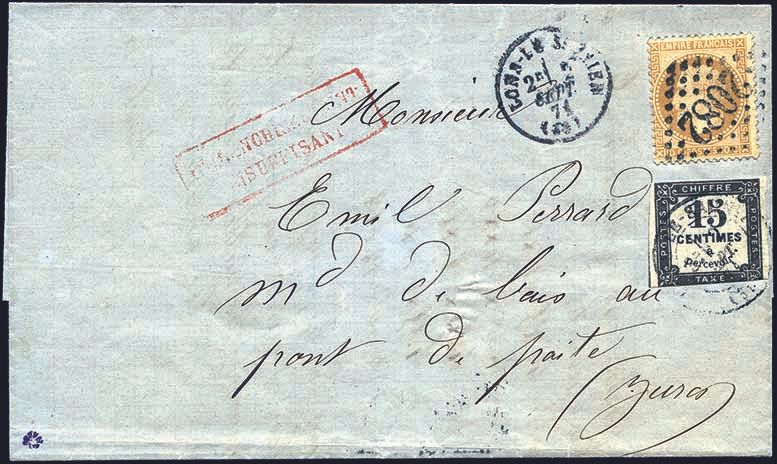 EMPIRE FRANÇAIS
LONS-LE-SAUNIER
2ᵉ
SEPT
71
(38)
2082
AFFRANCHISSEMENT
INSUFFISANT
CHIFFRE
POSTES
15
CENTIMES
à
percevoir
POSTES
TAXE
Monsieur
Emil Perrard
md de bois au
pont de poite
(Jura)